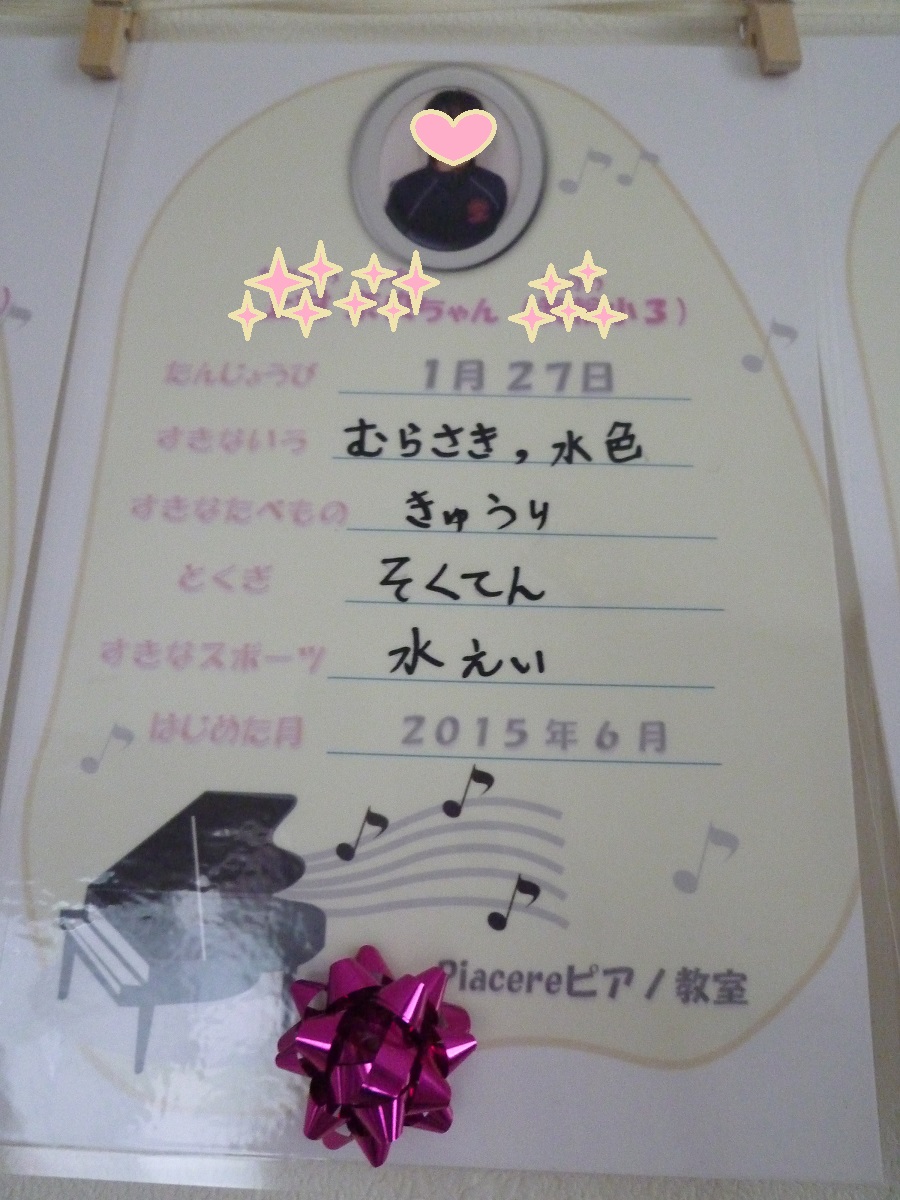 ちゃん 小3）
たんじょうび 1月27日
すきないろ むらさき，水色
すきなたべもの きゅうり
とくぎ そくてん
すきなスポーツ 水えい
はじめた月 2015年6月
Piacereピアノ教室